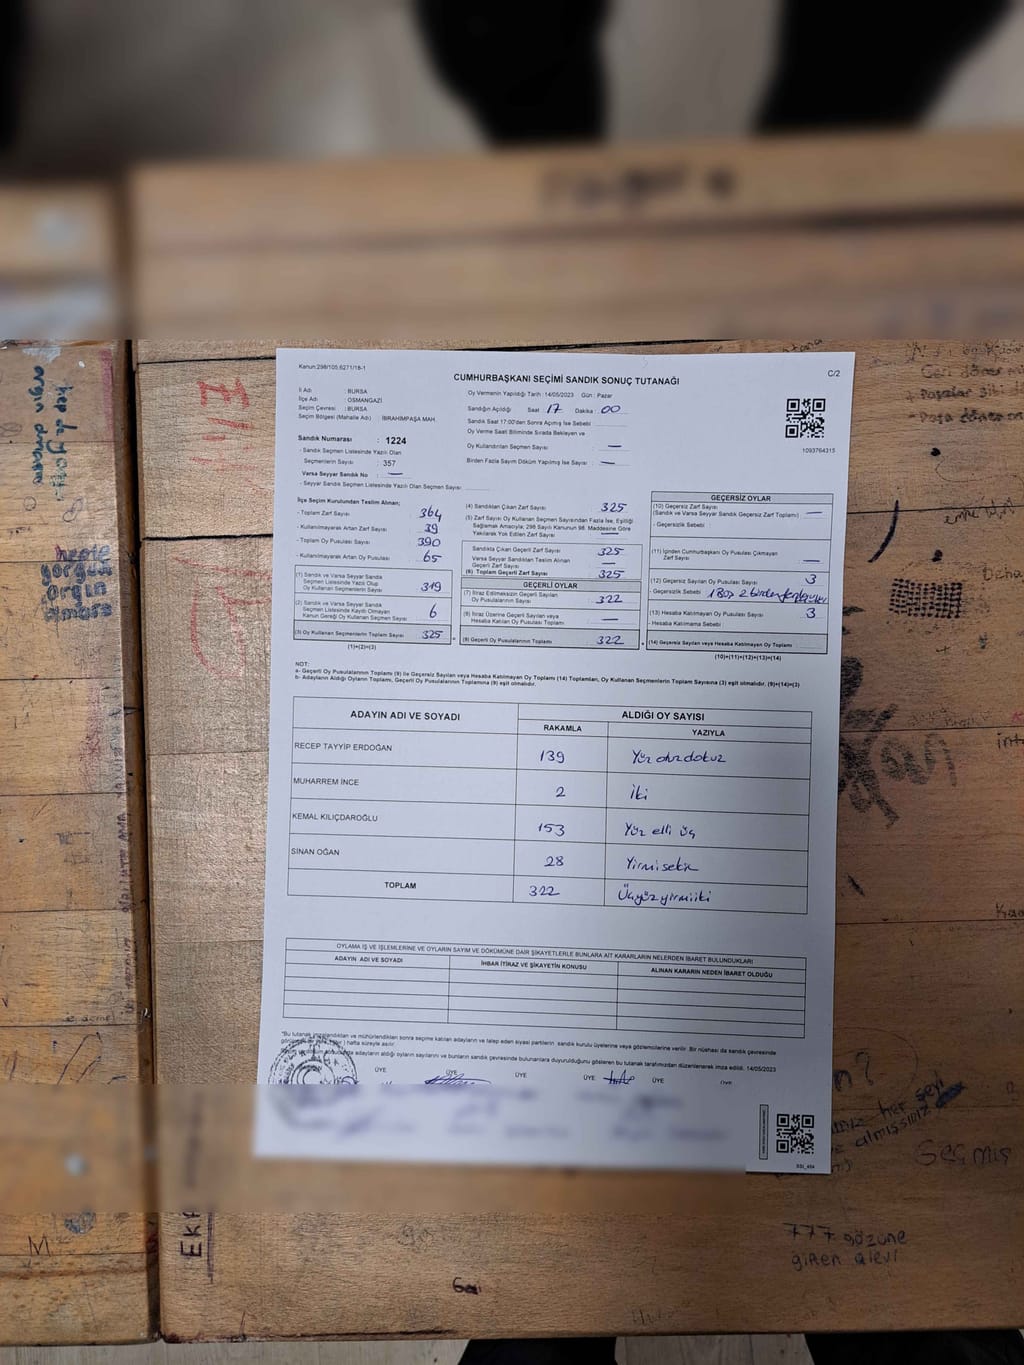 Kanun:298/105,6271/18-1
C/2
CUMHURBAŞKANI SEÇİMİ SANDIK SONUÇ TUTANAĞI
İl Adı : BURSA
İlçe Adı : OSMANGAZİ
Seçim Çevresi : BURSA
Seçim Bölgesi (Mahalle Adı) : İBRAHİMPAŞA MAH.
Sandık Numarası : 1224
- Sandık Seçmen Listesinde Yazılı Olan
Seçmenlerin Sayısı : 357
Varsa Seyyar Sandık No : —
- Seyyar Sandık Seçmen Listesinde Yazılı Olan Seçmen Sayısı:
Oy Vermenin Yapıldığı Tarih : 14/05/2023 Gün : Pazar
Sandığın Açıldığı Saat : 17 Dakika : 00
Sandık Saat 17:00'den Sonra Açılmış İse Sebebi :
Oy Verme Saati Bitiminde Sırada Bekleyen ve
Oy Kullandırılan Seçmen Sayısı : —
Birden Fazla Sayım Döküm Yapılmış İse Sayısı : —
1093764315
İlçe Seçim Kurulundan Teslim Alınan;
- Toplam Zarf Sayısı : 364
- Kullanılmayarak Artan Zarf Sayısı : 39
- Toplam Oy Pusulası Sayısı : 390
- Kullanılmayarak Artan Oy Pusulası : 65
(1) Sandık ve Varsa Seyyar Sandık
Seçmen Listesinde Yazılı Olup
Oy Kullanan Seçmenlerin Sayısı : 319
(2) Sandık ve Varsa Seyyar Sandık
Seçmen Listesinde Kayıtlı Olmayan
Kanun Gereği Oy Kullanan Seçmen Sayısı : 6
(3) Oy Kullanan Seçmenlerin Toplam Sayısı : 325
(1)+(2)=(3)
(4) Sandıktan Çıkan Zarf Sayısı : 325
(5) Zarf Sayısı Oy Kullanan Seçmen Sayısından Fazla İse, Eşitliği
Sağlamak Amacıyla; 298 Sayılı Kanunun 98. Maddesine Göre
Yakılarak Yok Edilen Zarf Sayısı : —
Sandıkta Çıkan Geçerli Zarf Sayısı : 325
Varsa Seyyar Sandıktan Teslim Alınan
Geçerli Zarf Sayısı : —
(6) Toplam Geçerli Zarf Sayısı : 325
GEÇERLİ OYLAR
(7) İtiraz Edilmeksizin Geçerli Sayılan
Oy Pusulalarının Sayısı : 322
(8) İtiraz Üzerine Geçerli Sayılan veya
Hesaba Katılan Oy Pusulası Sayısı : —
(9) Geçerli Oy Pusulalarının Toplamı : 322
GEÇERSİZ OYLAR
(10) Geçersiz Zarf Sayısı
(Sandık ve Varsa Seyyar Sandık Geçersiz Zarf Toplamı) : —
- Geçersizlik Sebebi :
(11) İçinden Cumhurbaşkanı Oy Pusulası Çıkmayan
Zarf Sayısı : —
(12) Geçersiz Sayılan Oy Pusulası Sayısı : 3
- Geçersizlik Sebebi : 1 Boş 2 birden
(13) Hesaba Katılmayan Oy Pusulası Sayısı : 3
- Hesaba Katılmama Sebebi :
(14) Geçersiz Sayılan veya Hesaba Katılmayan Oy Toplamı
(10)+(11)+(12)+(13)=(14)
NOT:
a- Geçerli Oy Pusulalarının Toplamı (9) ile Geçersiz Sayılan veya Hesaba Katılmayan Oy Toplamı (14) Toplamları, Oy Kullanan Seçmenlerin Toplam Sayısına (3) eşit olmalıdır. (9)+(14)=(3)
b- Adayların Aldığı Oyların Toplamı, Geçerli Oy Pusulalarının Toplamına (9) eşit olmalıdır.
ADAYIN ADI VE SOYADI
ALDIĞI OY SAYISI
RAKAMLA YAZIYLA
RECEP TAYYİP ERDOĞAN 139 Yüz otuz dokuz
MUHARREM İNCE 2 İki
KEMAL KILIÇDAROĞLU 153 Yüz elli üç
SİNAN OĞAN 28 Yirmi sekiz
TOPLAM 322 Üçyüzyirmiiki
OYLAMA İŞ VE İŞLEMLERİNE VE OYLARIN SAYIM VE DÖKÜMÜNE DAİR ŞİKAYETLERLE BUNLARA AİT KARARLARIN NELERDEN İBARET BULUNDUKLARI
ADAYIN ADI VE SOYADI İHBAR İTİRAZ VE ŞİKAYETİN KONUSU ALINAN KARARIN NEDEN İBARET OLDUĞU
*Bu tutanak imzalandıktan ve mühürlendikten sonra seçime katılan adayların ve talep eden siyasi partilerin sandık kurulu üyelerine veya gözlemcilerine verilir. Bir nüshası da sandık çevresinde
hafta süreyle asılır.
adayların aldığı oyların sayılarını ve bunların sandık çevresinde bulunanlara duyurulduğunu gösteren bu tutanak tarafımızdan düzenlenerek imza edildi. 14/05/2023
ÜYE ÜYE ÜYE ÜYE ÜYE ÜYE
hep
görgün
orgin
777 gözüne
giren alevi
Seçmiş
her şeyi
almışsınız
M